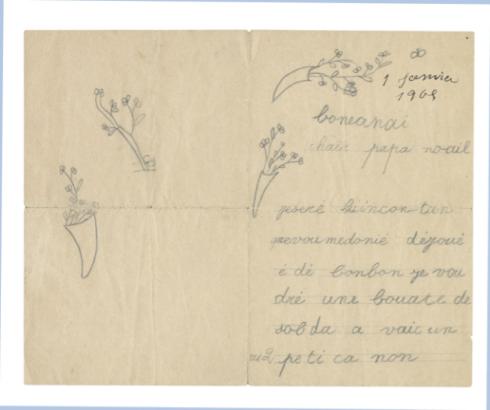 1 janvier
1905
boneanai
chair papa noail
peseré
pevoumedonié déjoué
é dé bonbon je vou
dré une bouate de
solda a vaic un
peti ca non